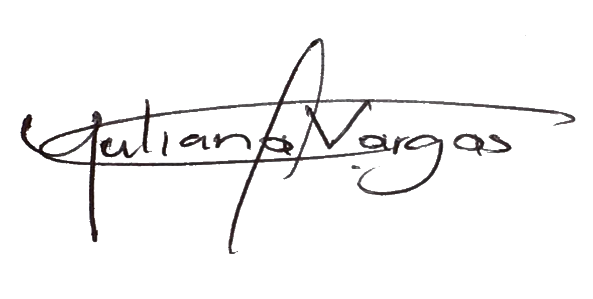 Yuliana Vargas